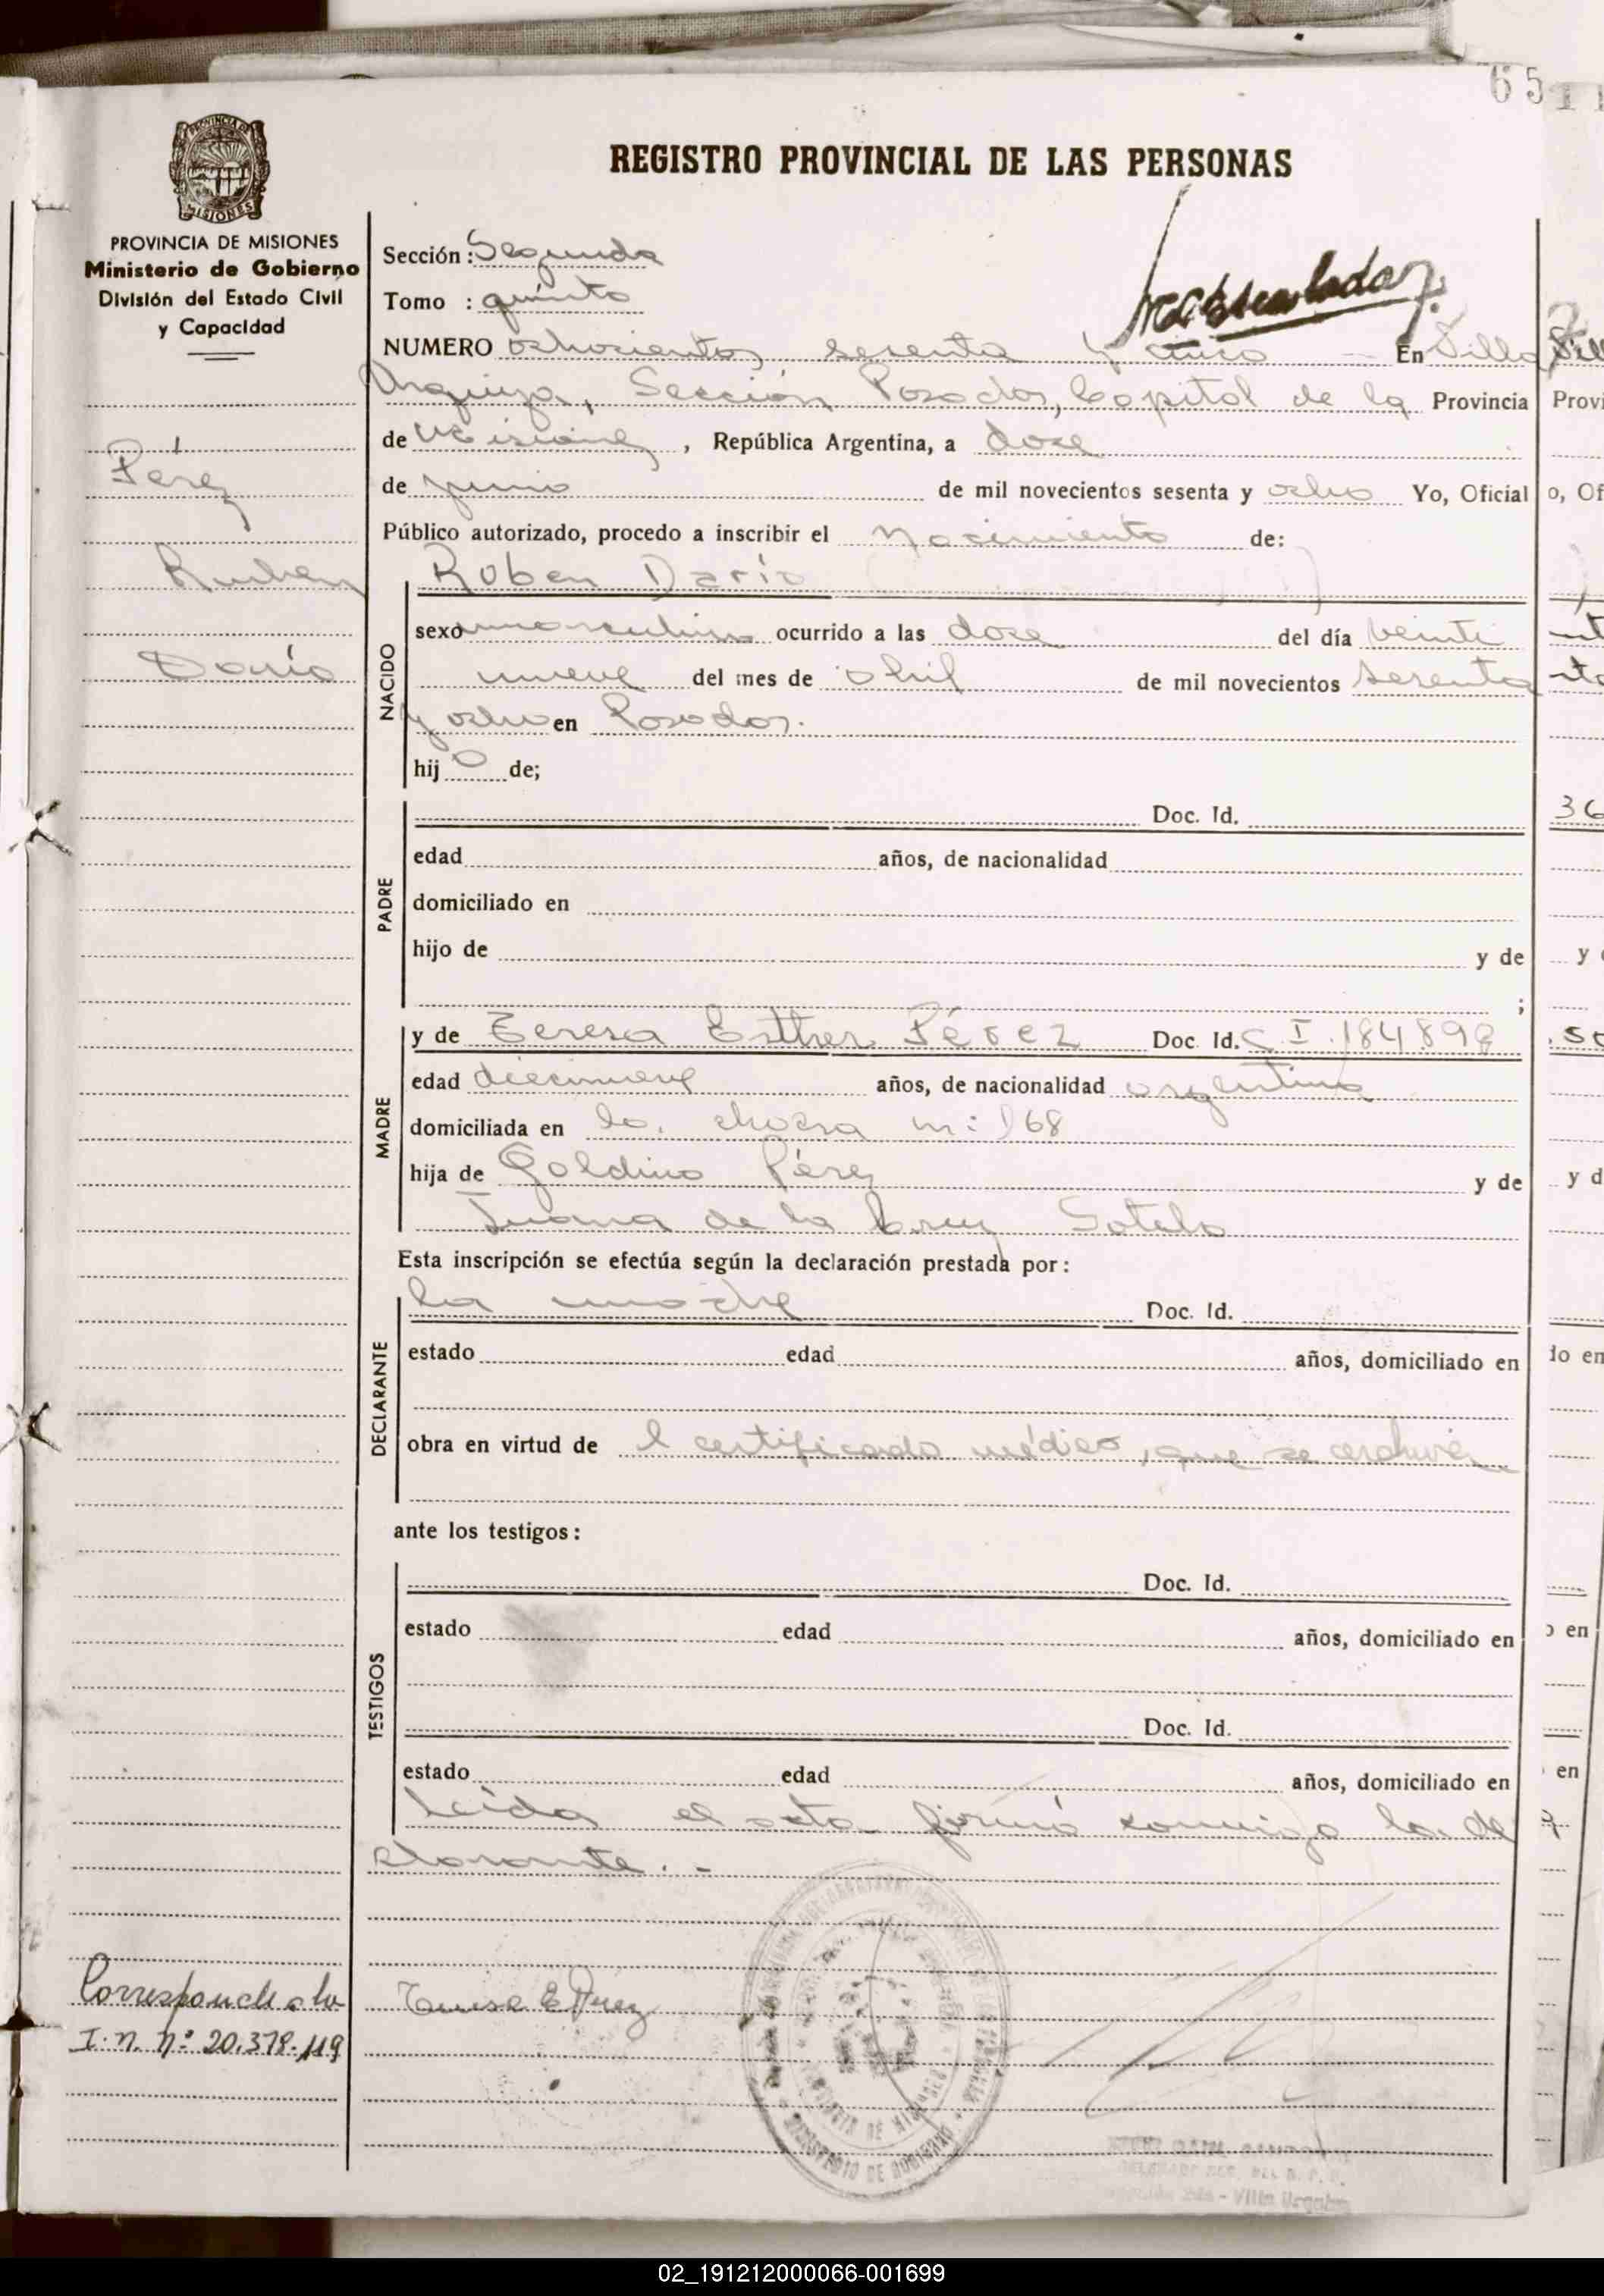 REGISTRO PROVINCIAL DE LAS PERSONAS
PROVINCIA DE MISIONES
Ministerio de Gobierno
División del Estado Civil
y Capacidad
Sección: Segunda
Tomo : quinto
NUMERO ochocientos sesenta y cinco En Villa
Urquiza, Sección Posadas, Capital de la Provincia
de Misiones, República Argentina, a doce
de junio de mil novecientos sesenta y ocho Yo, Oficial
Público autorizado, procedo a inscribir el Nacimiento de:
Pérez
Ruben
Darío
NACIDO
Ruben Darío
sexo masculino ocurrido a las doce del día veinti
nueve del mes de abril de mil novecientos sesenta
y ocho en Posadas.
hijo de;
PADRE
Doc. Id.
edad años, de nacionalidad
domiciliado en
hijo de y de
;
MADRE
y de Teresa Esther Pérez Doc. Id. C.I. 184898
edad diecinueve años, de nacionalidad argentina
domiciliada en la chacra n: 168
hija de Galdino Pérez y de
Juana de la Cruz Sotelo
Esta inscripción se efectúa según la declaración prestada por:
DECLARANTE
la madre Doc. Id.
estado edad años, domiciliado en
obra en virtud de l certificado médico, que se archiva
ante los testigos:
TESTIGOS
Doc. Id.
estado edad años, domiciliado en
Doc. Id.
estado edad años, domiciliado en
Leída el acta firmó conmigo la de
clarante. -
Corresponde a la
I. n. nº 20.378.119
Teresa E Pérez
MINISTERIO DE GOBIERNO
Villa Urquiza
02_191212000066-001699